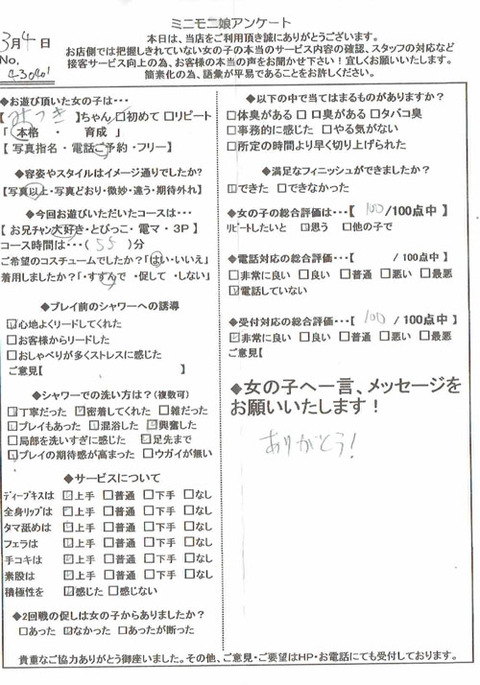 ミニモニ娘アンケート
3月4日
本日は、当店をご利用頂き誠にありがとうございます。
No.
お店側では把握しきれていない女の子の本当のサービス内容の確認、スタッフの対応など
接客サービス向上の為、お客様の本当の声をお聞かせ下さい!宜しくお願いいたします。
簡素化の為、語彙が平易であることをお許しください。
◆お遊び頂いた女の子は・・・
【みつき】ちゃん □初めて □リピート
「 本格 ・ 育成 」
【 写真指名・電話ご予約・フリー】
◆容姿やスタイルはイメージ通りでしたか?
【写真以上・写真どおり・微妙・違う・期待外れ】
◆今回お遊びいただいたコースは・・・
【お兄チャン大好き・とびっこ・電マ・3P】
コース時間は・・・(55)分
ご希望のコスチュームでしたか?「はい・いいえ」
着用しましたか?「・すすんで ・促して ・しない」
◆プレイ前のシャワーへの誘導
□心地よくリードしてくれた
□お客様からリードした
□おしゃべりが多くストレスに感じた
ご意見【 】
◆シャワーでの洗い方は?(複数可)
□丁寧だった □密着してくれた □雑だった
□プレイもあった □混浴した □興奮した
□局部を洗いすぎに感じた □足先まで
□プレイの期待感が高まった □ウガイが無い
◆サービスについて
ディープキスは □上手 □普通 □下手 □なし
全身リップは □上手 □普通 □下手 □なし
タマ舐めは □上手 □普通 □下手 □なし
フェラは □上手 □普通 □下手 □なし
手コキは □上手 □普通 □下手 □なし
素股は □上手 □普通 □下手 □なし
積極性を □感じた □感じない
◆2回戦の促しは女の子からありましたか?
□あった □なかった □あったが断った
◆以下の中で当てはまるものがありますか?
□体臭がある □口臭がある □タバコ臭
□事務的に感じた □やる気がない
□所定の時間より早く切り上げられた
◆満足なフィニッシュができましたか?
□できた □できなかった
◆女の子の総合評価は・・・【 100/100点中】
リピートしたいと □思う □他の子で
◆電話対応の総合評価・・・【 /100点中 】
□非常に良い □良い □普通 □悪い □最悪
□電話していない
◆受付対応の総合評価・・・【 100/100点中】
□非常に良い □良い □普通 □悪い □最悪
ご意見【
◆女の子へ一言、メッセージを
お願いいたします!
ありがとう!
貴重なご協力ありがとう御座いました。その他、ご意見・ご要望はHP・お電話にても受付しております。